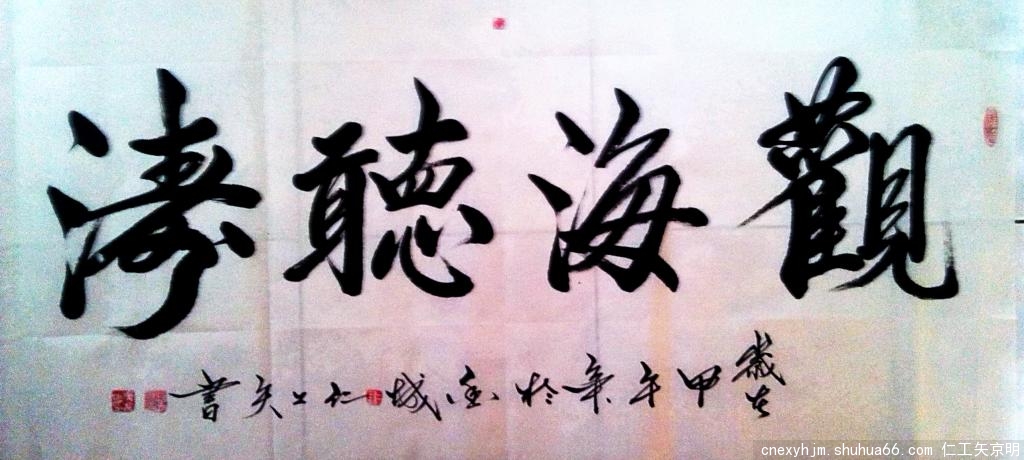 觀海聽濤
歲在甲午年於金城仁工矢書
cnexyhjm.shuhua66.com 仁工矢京明